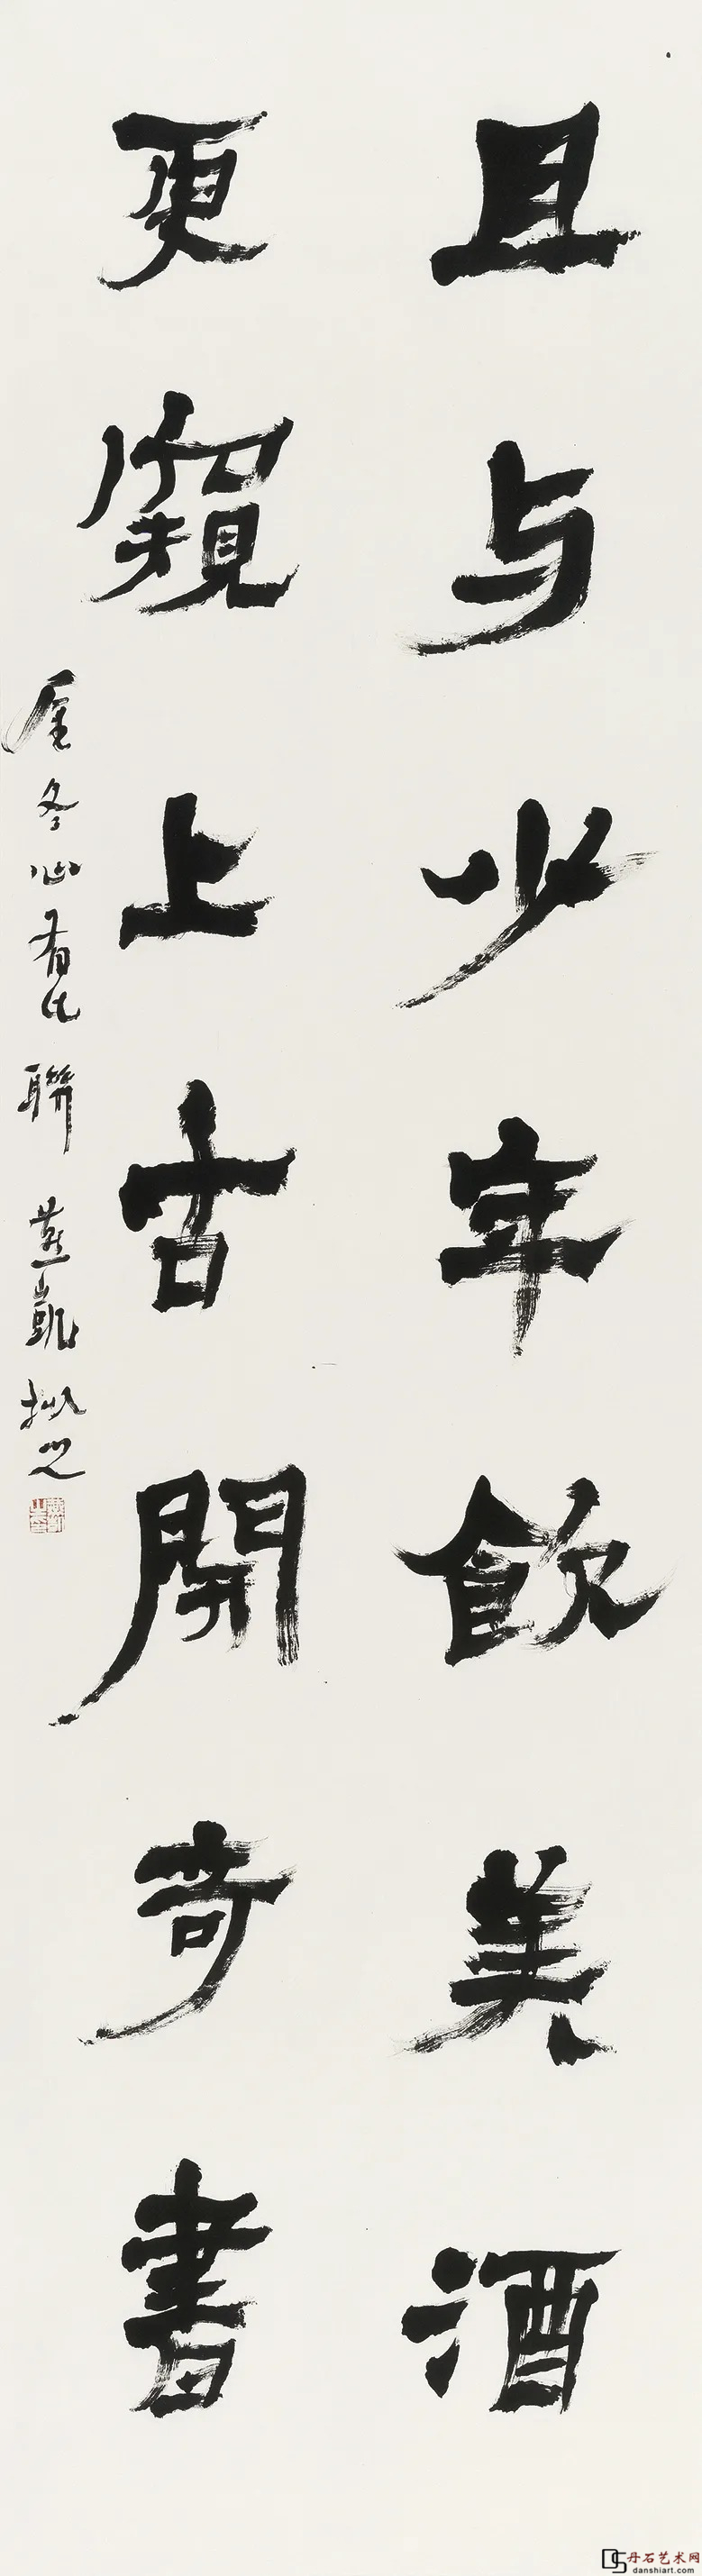 且与少年飲美酒
更窺上古開奇書
金冬心有此聯 燕凱拟之
丹石艺术网
danshiart.com